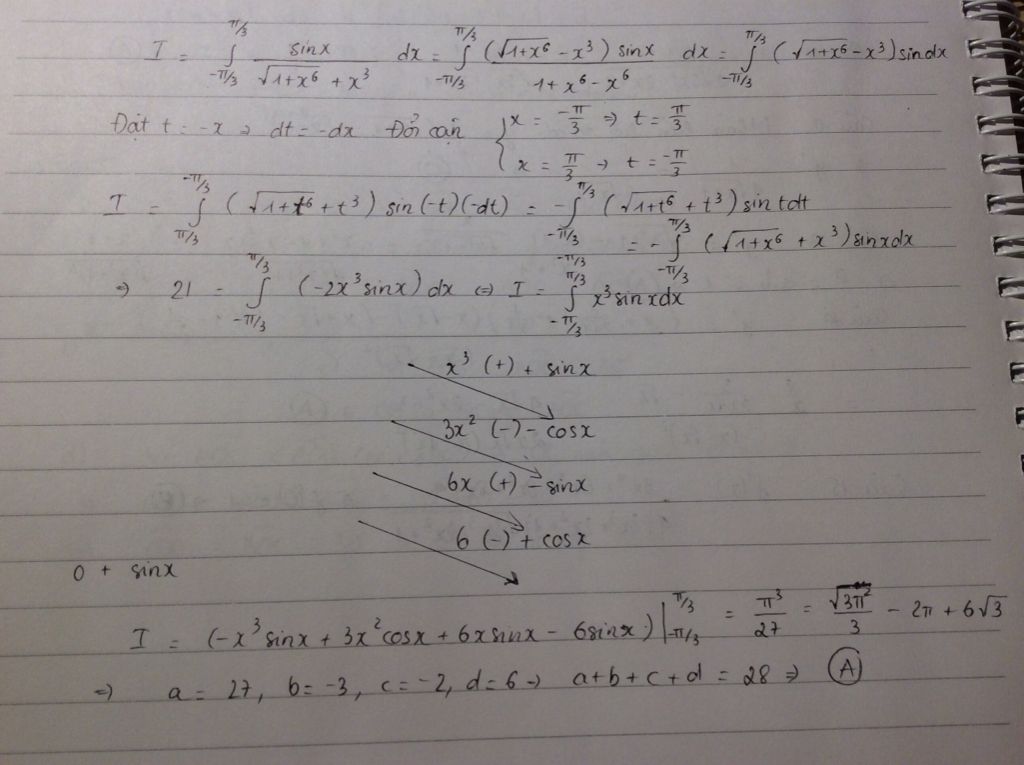 I = ∫_{-π/3}^{π/3} sinx / (√(1+x⁶) + x³) dx = ∫_{-π/3}^{π/3} (√(1+x⁶) - x³) sinx / (1+x⁶-x⁶) dx = ∫_{-π/3}^{π/3} (√(1+x⁶) - x³) sindx
Đặt t = -x ⇒ dt = -dx Đổi cận { x = -π/3 ⇒ t = π/3
x = π/3 ⇒ t = -π/3
I = ∫_{π/3}^{-π/3} (√(1+t⁶) + t³) sin(-t)(-dt) = -∫_{-π/3}^{π/3} (√(1+t⁶) + t³) sintdt
= -∫_{-π/3}^{π/3} (√(1+x⁶) + x³) sinxdx
⇒ 2I = ∫_{-π/3}^{π/3} (-2x³sinx) dx ⇔ I = ∫_{-π/3}^{π/3} x³sinxdx
x³ (+) + sinx
3x² (-) - cosx
6x (+) - sinx
6 (-) + cosx
0 + sinx
I = (-x³sinx + 3x²cosx + 6xsinx - 6sinx) |_{-π/3}^{π/3} = π³/27 = √3π²/3 - 2π + 6√3
⇒ a = 27, b = -3, c = -2, d = 6 ⇒ a+b+c+d = 28 ⇒ (A)